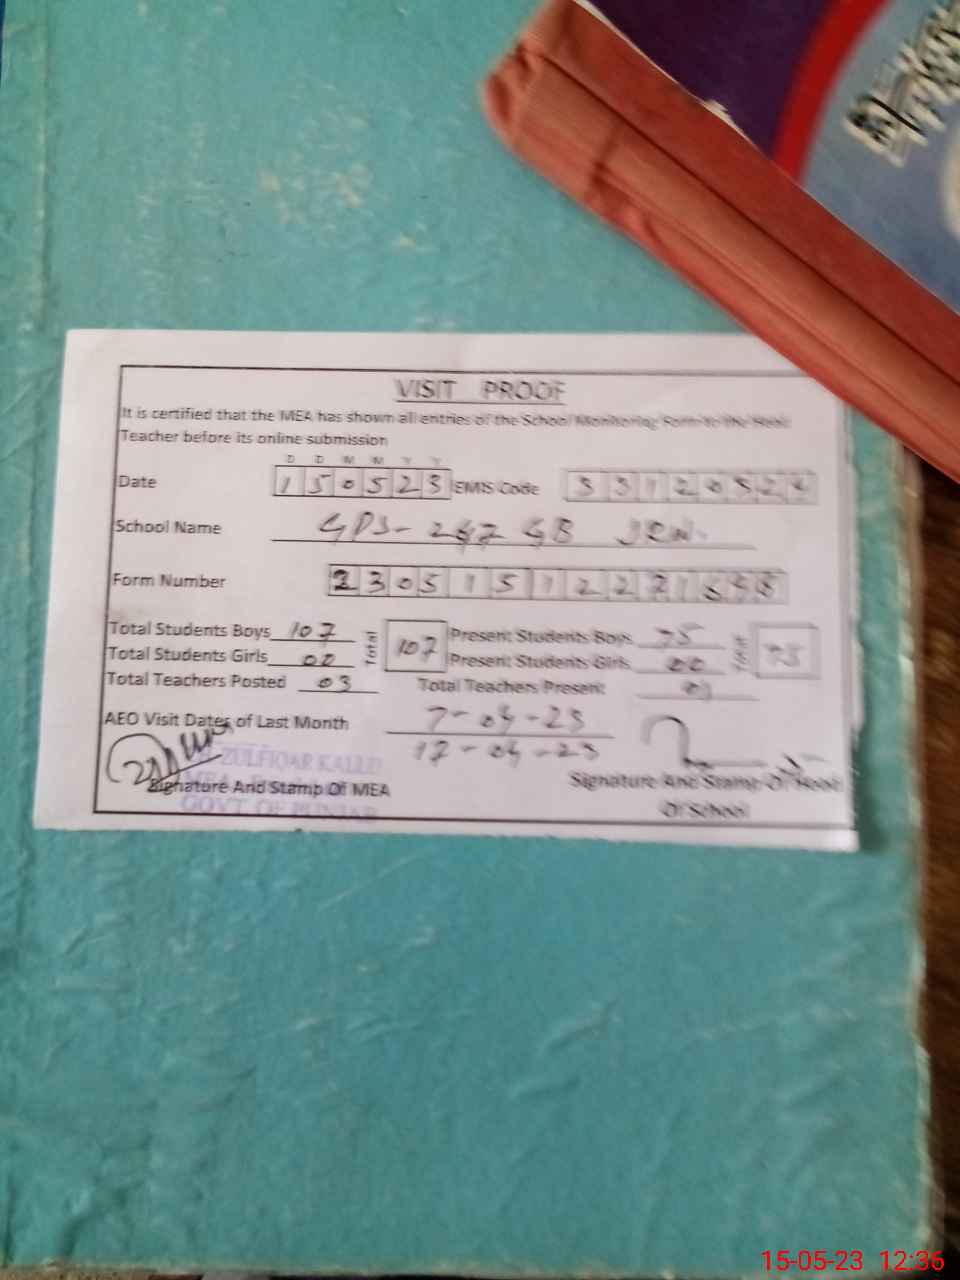 VISIT PROOF
It is certified that the MEA has shown all entries of the School Monitoring Form to the Head
Teacher before its online submission
D D M M Y Y
Date 150523 EMIS Code
School Name GPS- 247 GB JRW.
Form Number
Total Students Boys 107 Total 107 Present Students Boys 75 Total 75
Total Students Girls 00 Present Students Girls 00
Total Teachers Posted 03 Total Teachers Present 03
AEO Visit Dates of Last Month 7-04-23
17-04-23
ZULFIQAR KALLU
MEA
GOVT. OF PUNJAB
Signature And Stamp Of MEA
Signature And Stamp Of Head
Of School
15-05-23 12:36